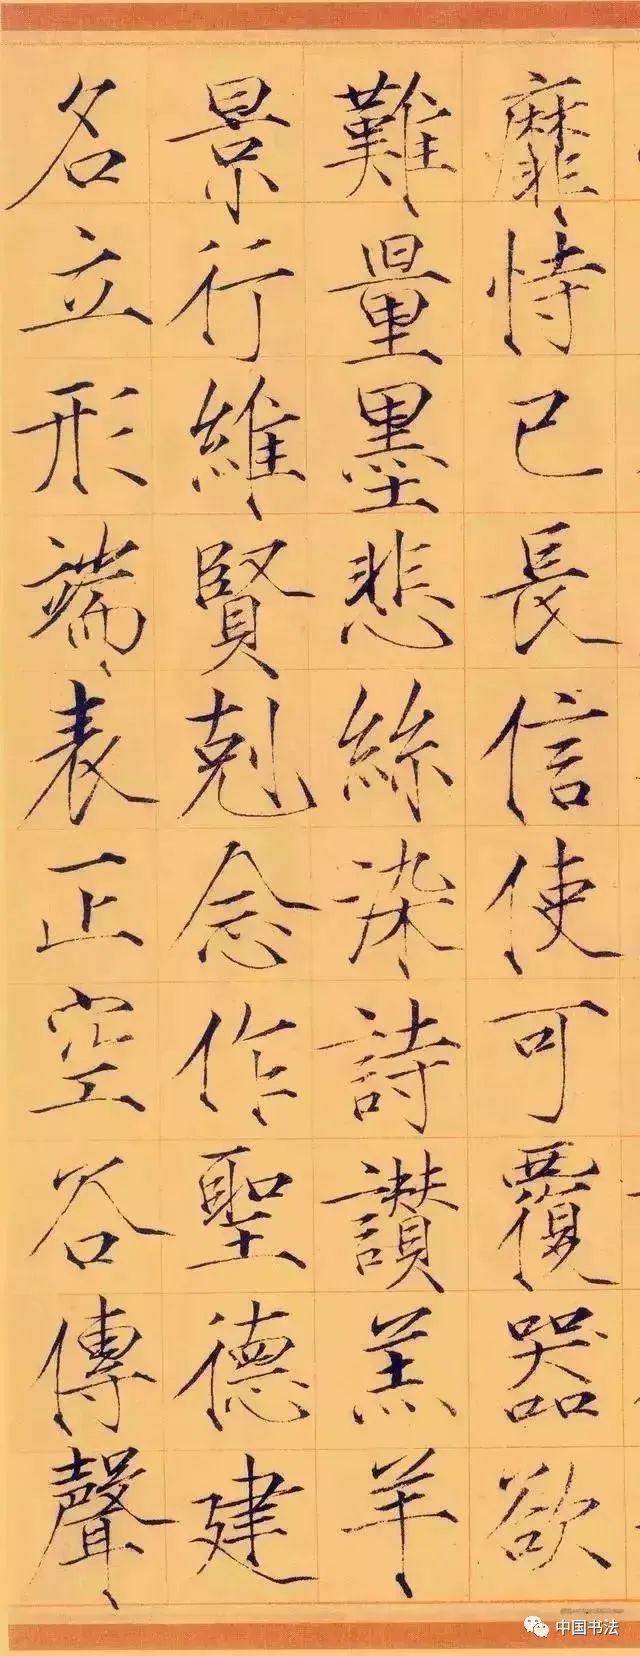 靡恃已長信使可覆器欲
難量墨悲絲染詩讃羔羊
景行維賢剋念作聖德建
名立形端表正空谷傳聲
中国书法